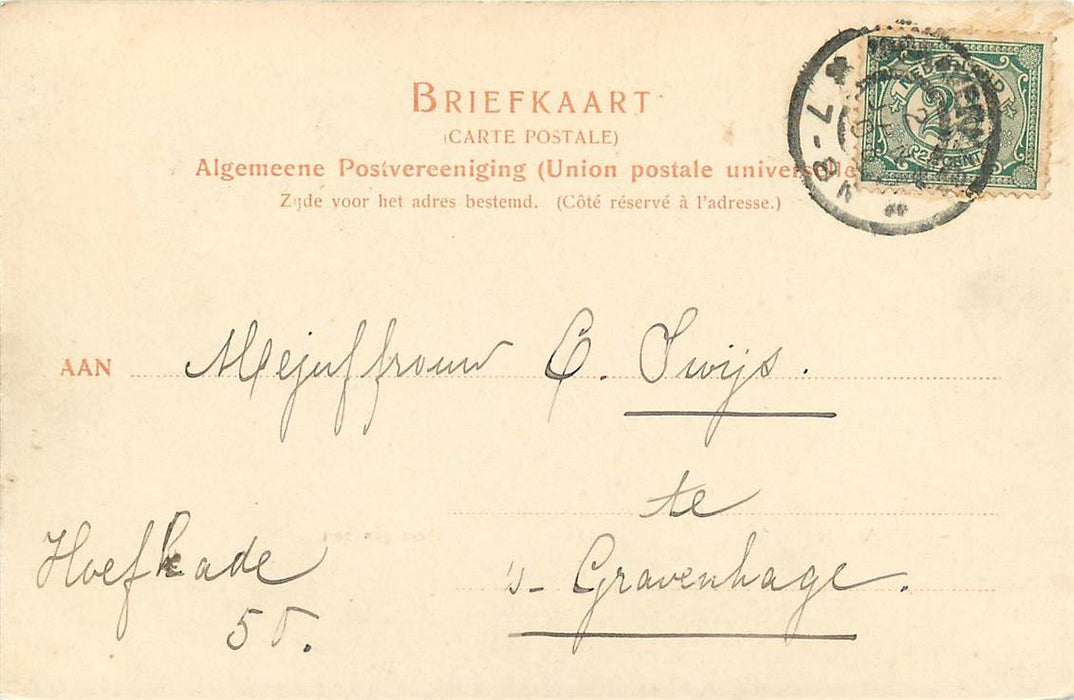 BRIEFKAART
(CARTE POSTALE)
Algemeene Postvereeniging (Union postale universelle)
Zijde voor het adres bestemd. (Côté réservé à l'adresse.)
NEDERLAND
2½ CENT
7-8 N
AAN Mejuffrouw C. Swijs.
te
's-Gravenhage.
Hoefkade
55.